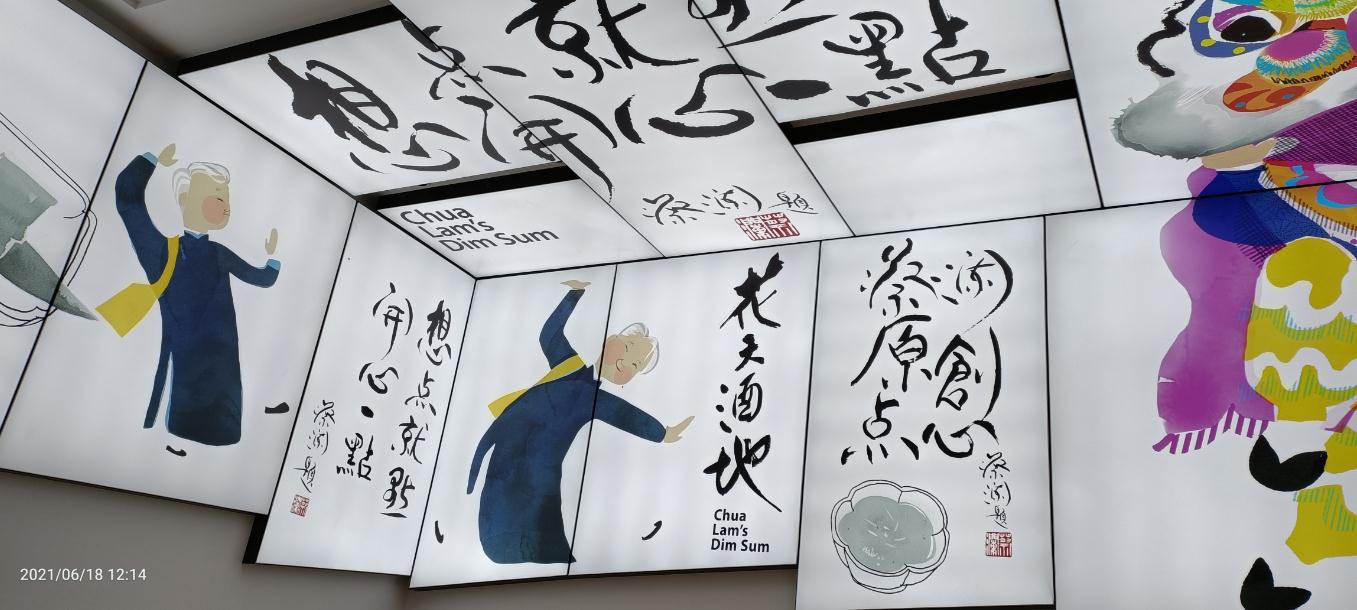 想点就點
開心一點
蔡瀾題
Chua
Lam's
Dim Sum
想点就點
開心一點
蔡瀾題
花天酒地
Chua
Lam's
Dim Sum
蔡瀾
原創
点心
蔡瀾題
2021/06/18 12:14